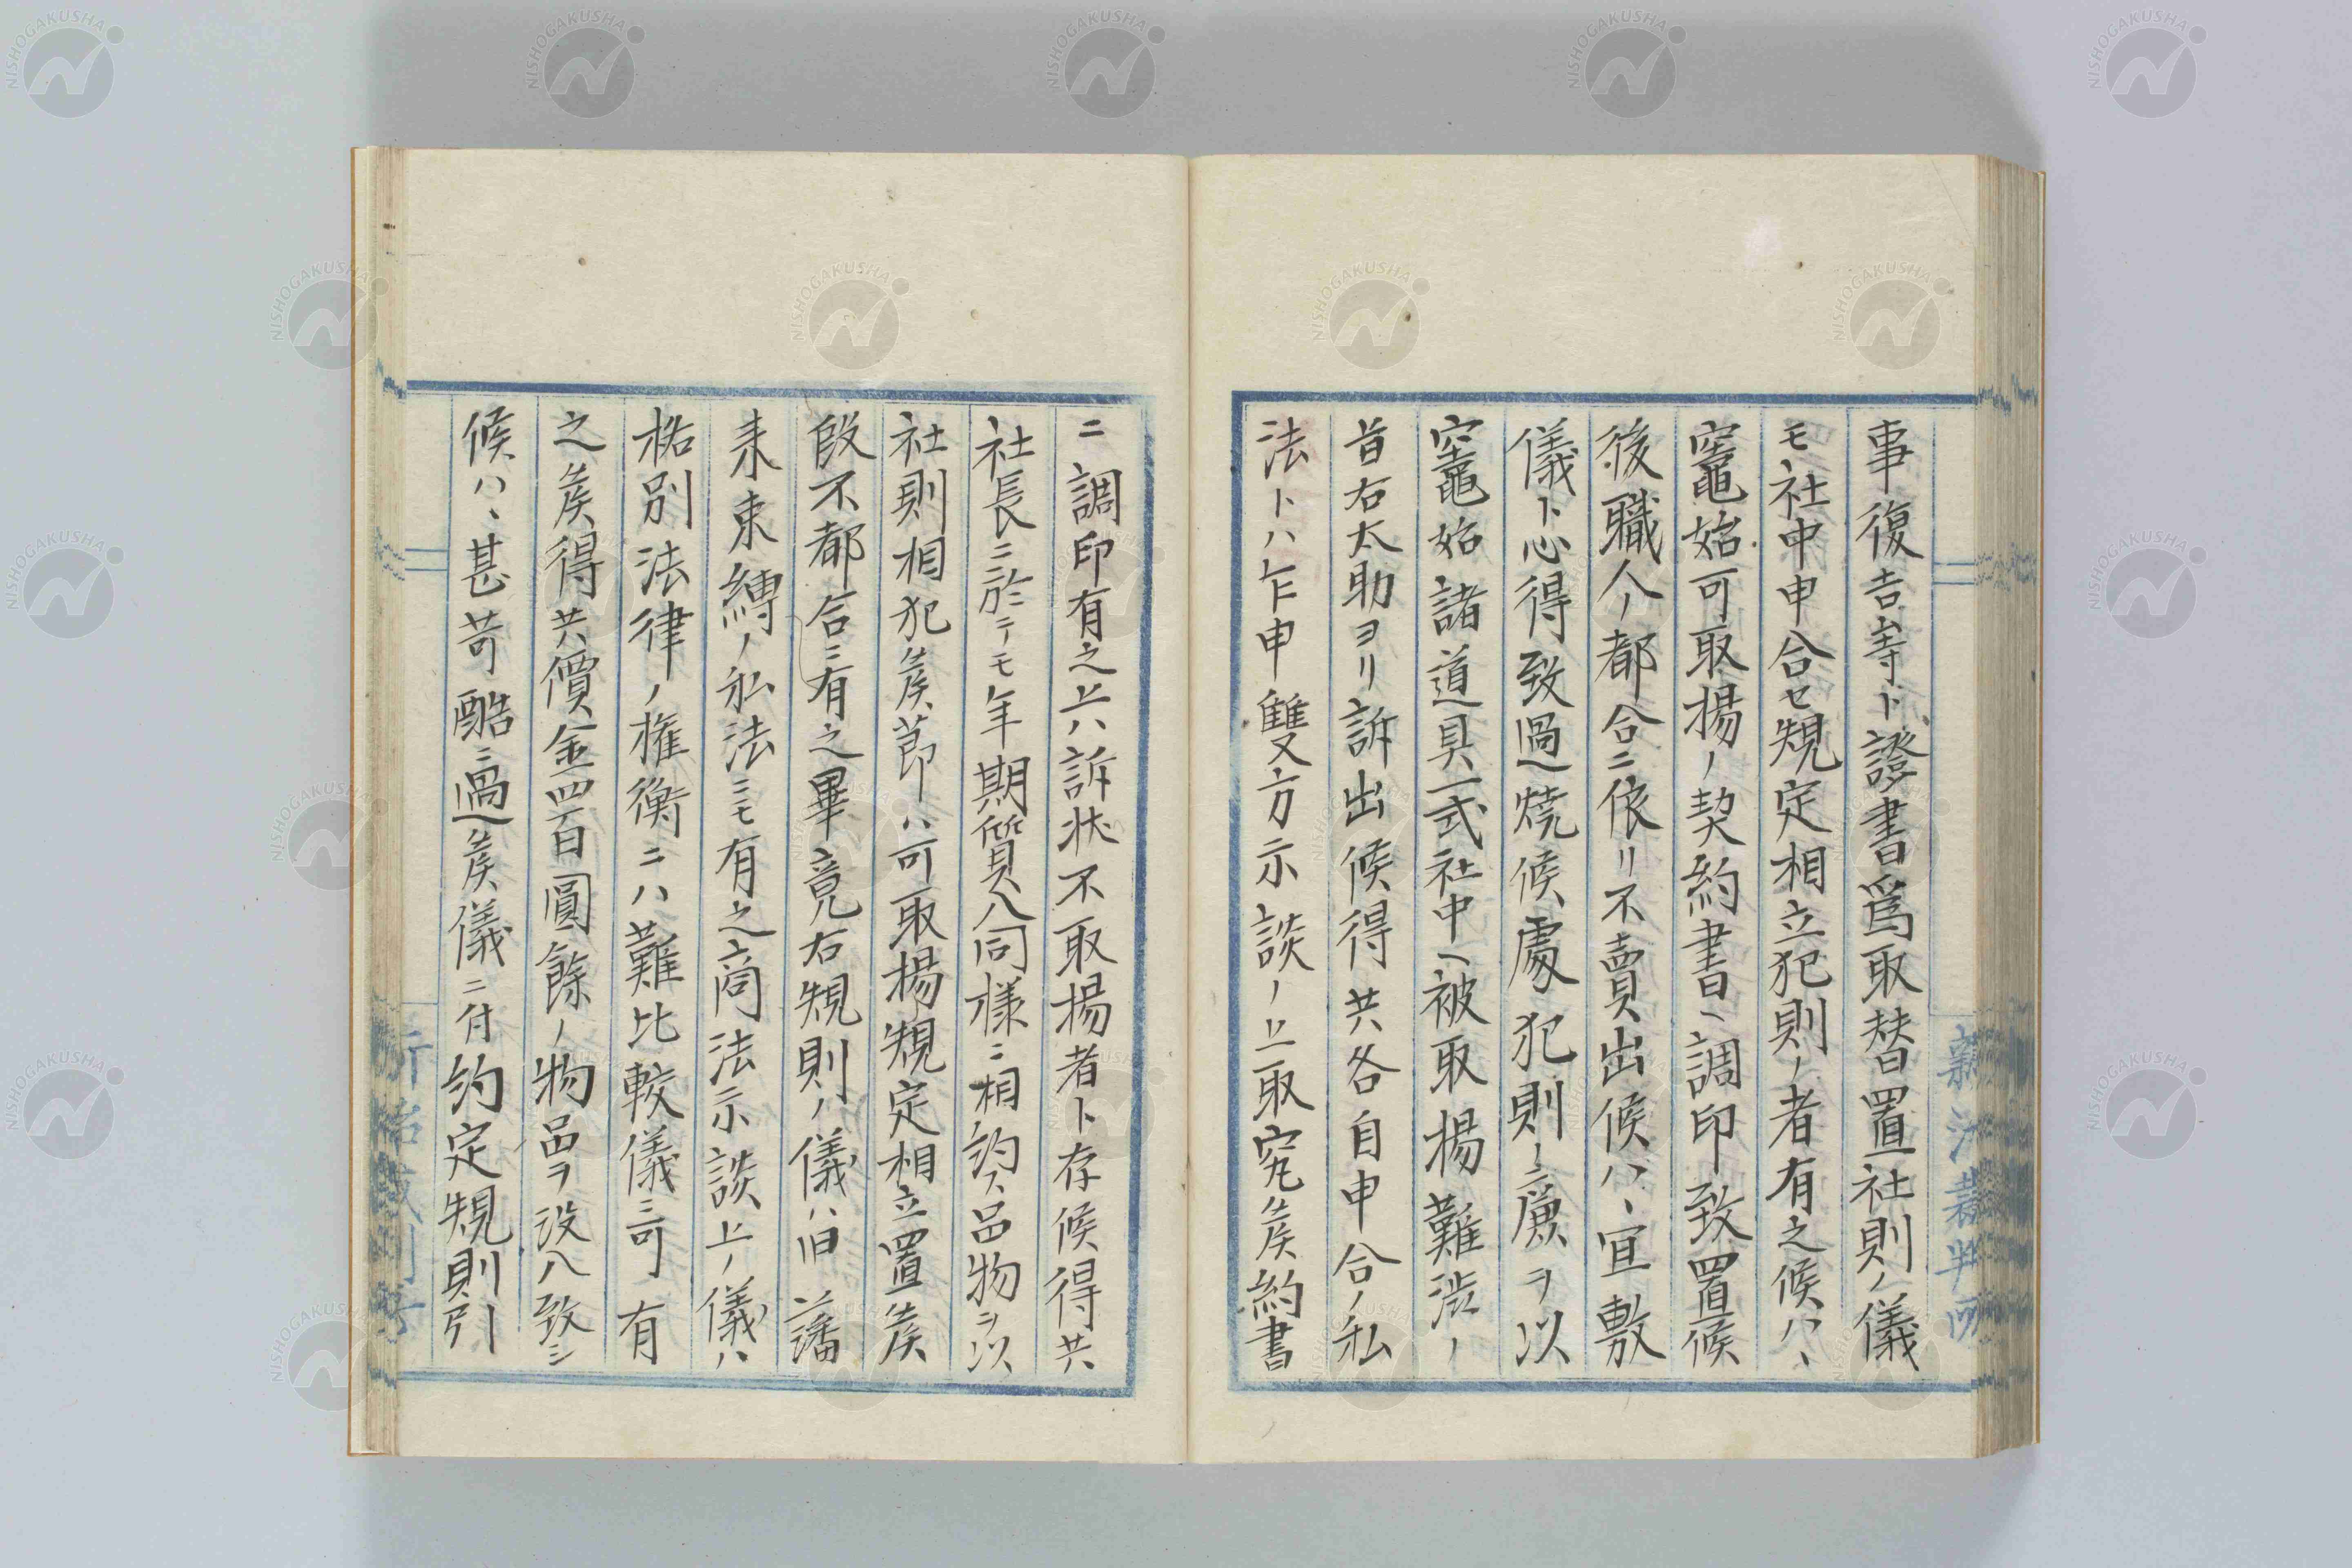 事復吉寺ト證書爲取替置社則ノ儀
モ社中申合セ規定相立犯則ノ者有之候ハヽ
竈始可取揚ノ契約書ヘ調印致置候
後職人ノ都合ニ依リ不賣出候ハヽ宜敷
儀ト心得致過焼候處犯則ノ廉ヲ以
竈始諸道具一式社中ヘ被取揚難渋ノ
旨右太助ヨリ訴出候得共各自申合ノ私
法トハ乍申雙方示談ノ上取究候約書
ニ調印有之上ハ訴状不取揚者ト存候得共
社長ニ於テモ年期質入同様ニ相約ス品物ヲ以
社則相犯候節ハ可取揚規定相立置候
段不都合ニ有之畢竟右規則ノ儀ハ旧藩
来束縛ノ私法ニモ有之商法示談上ノ儀ハ
格別法律ノ権衡ニハ難比較儀ニ可有
之候得共價金四百圓餘ノ物品ヲ没入致シ
候ハヽ甚苛酷ニ過候儀ニ付約定規則引
新治裁判所
NISHOGAKUSHA